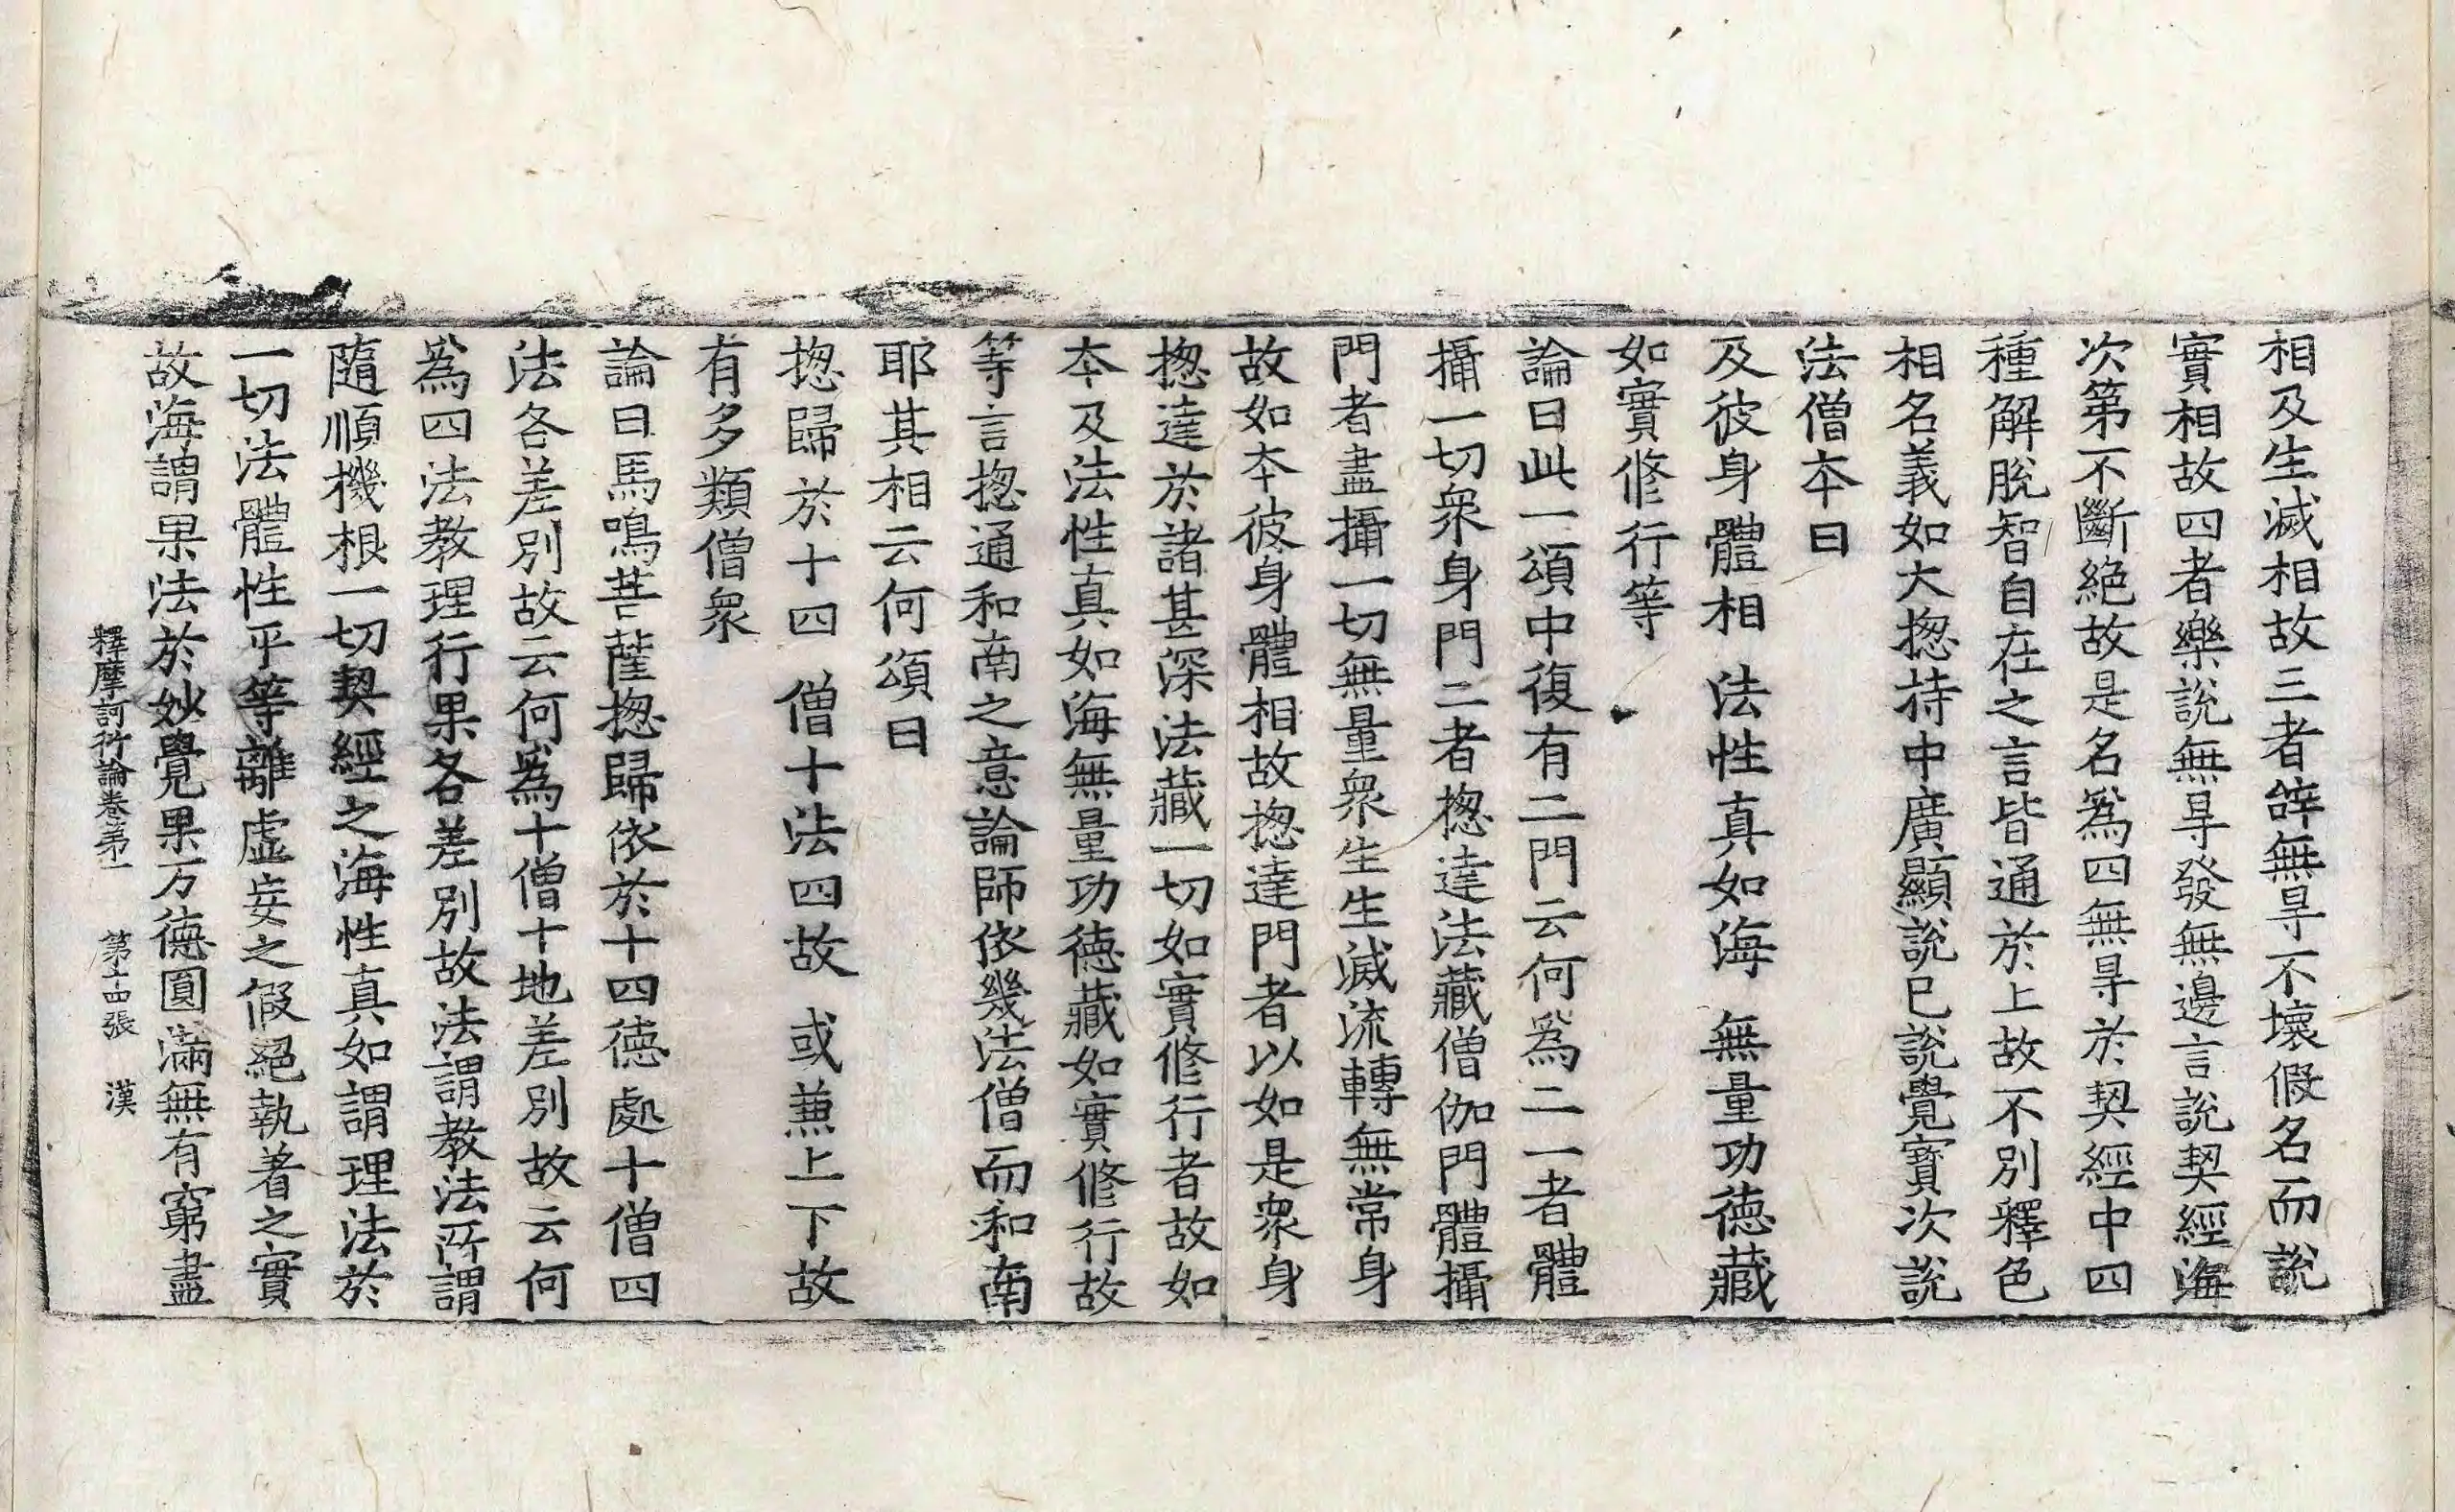 相及生滅相故三者辝無㝵不壞假名而說
實相故四者樂說無㝵發無邊言說契經海
次第不斷絕故是名為四無㝵於契經中四
種解脫智自在之言皆通於上故不別釋色
相名義如大揔持中廣顯說已說覺寶次說
法僧夲曰
及彼身體相 法性真如海 無量功徳藏
如實修行等
論曰此一頌中復有二門云何為二一者體
攝一切衆身門二者揔達法藏僧伽門體攝
門者盡攝一切無量衆生生滅流轉無常身
故如夲彼身體相故揔達門者以如是衆身
揔達於諸甚深法藏一切如實修行者故如
夲及法性真如海無量功徳藏如實修行故
等言揔通和南之意論師依幾法僧而和南
耶其相云何頌曰
揔歸於十四 僧十法四故 或兼上下故
有多類僧衆
論曰馬鳴菩薩揔歸依於十四徳處十僧四
法各差別故云何為十僧十地差別故云何
為四法教理行果各差別故法謂教法所謂
隨順機根一切契經之海性真如謂理法於
一切法體性平等離虛妄之假絕執著之實
故海謂果法於妙覺果万徳圓滿無有窮盡
釋摩訶衍論卷第一 第十四張 漢